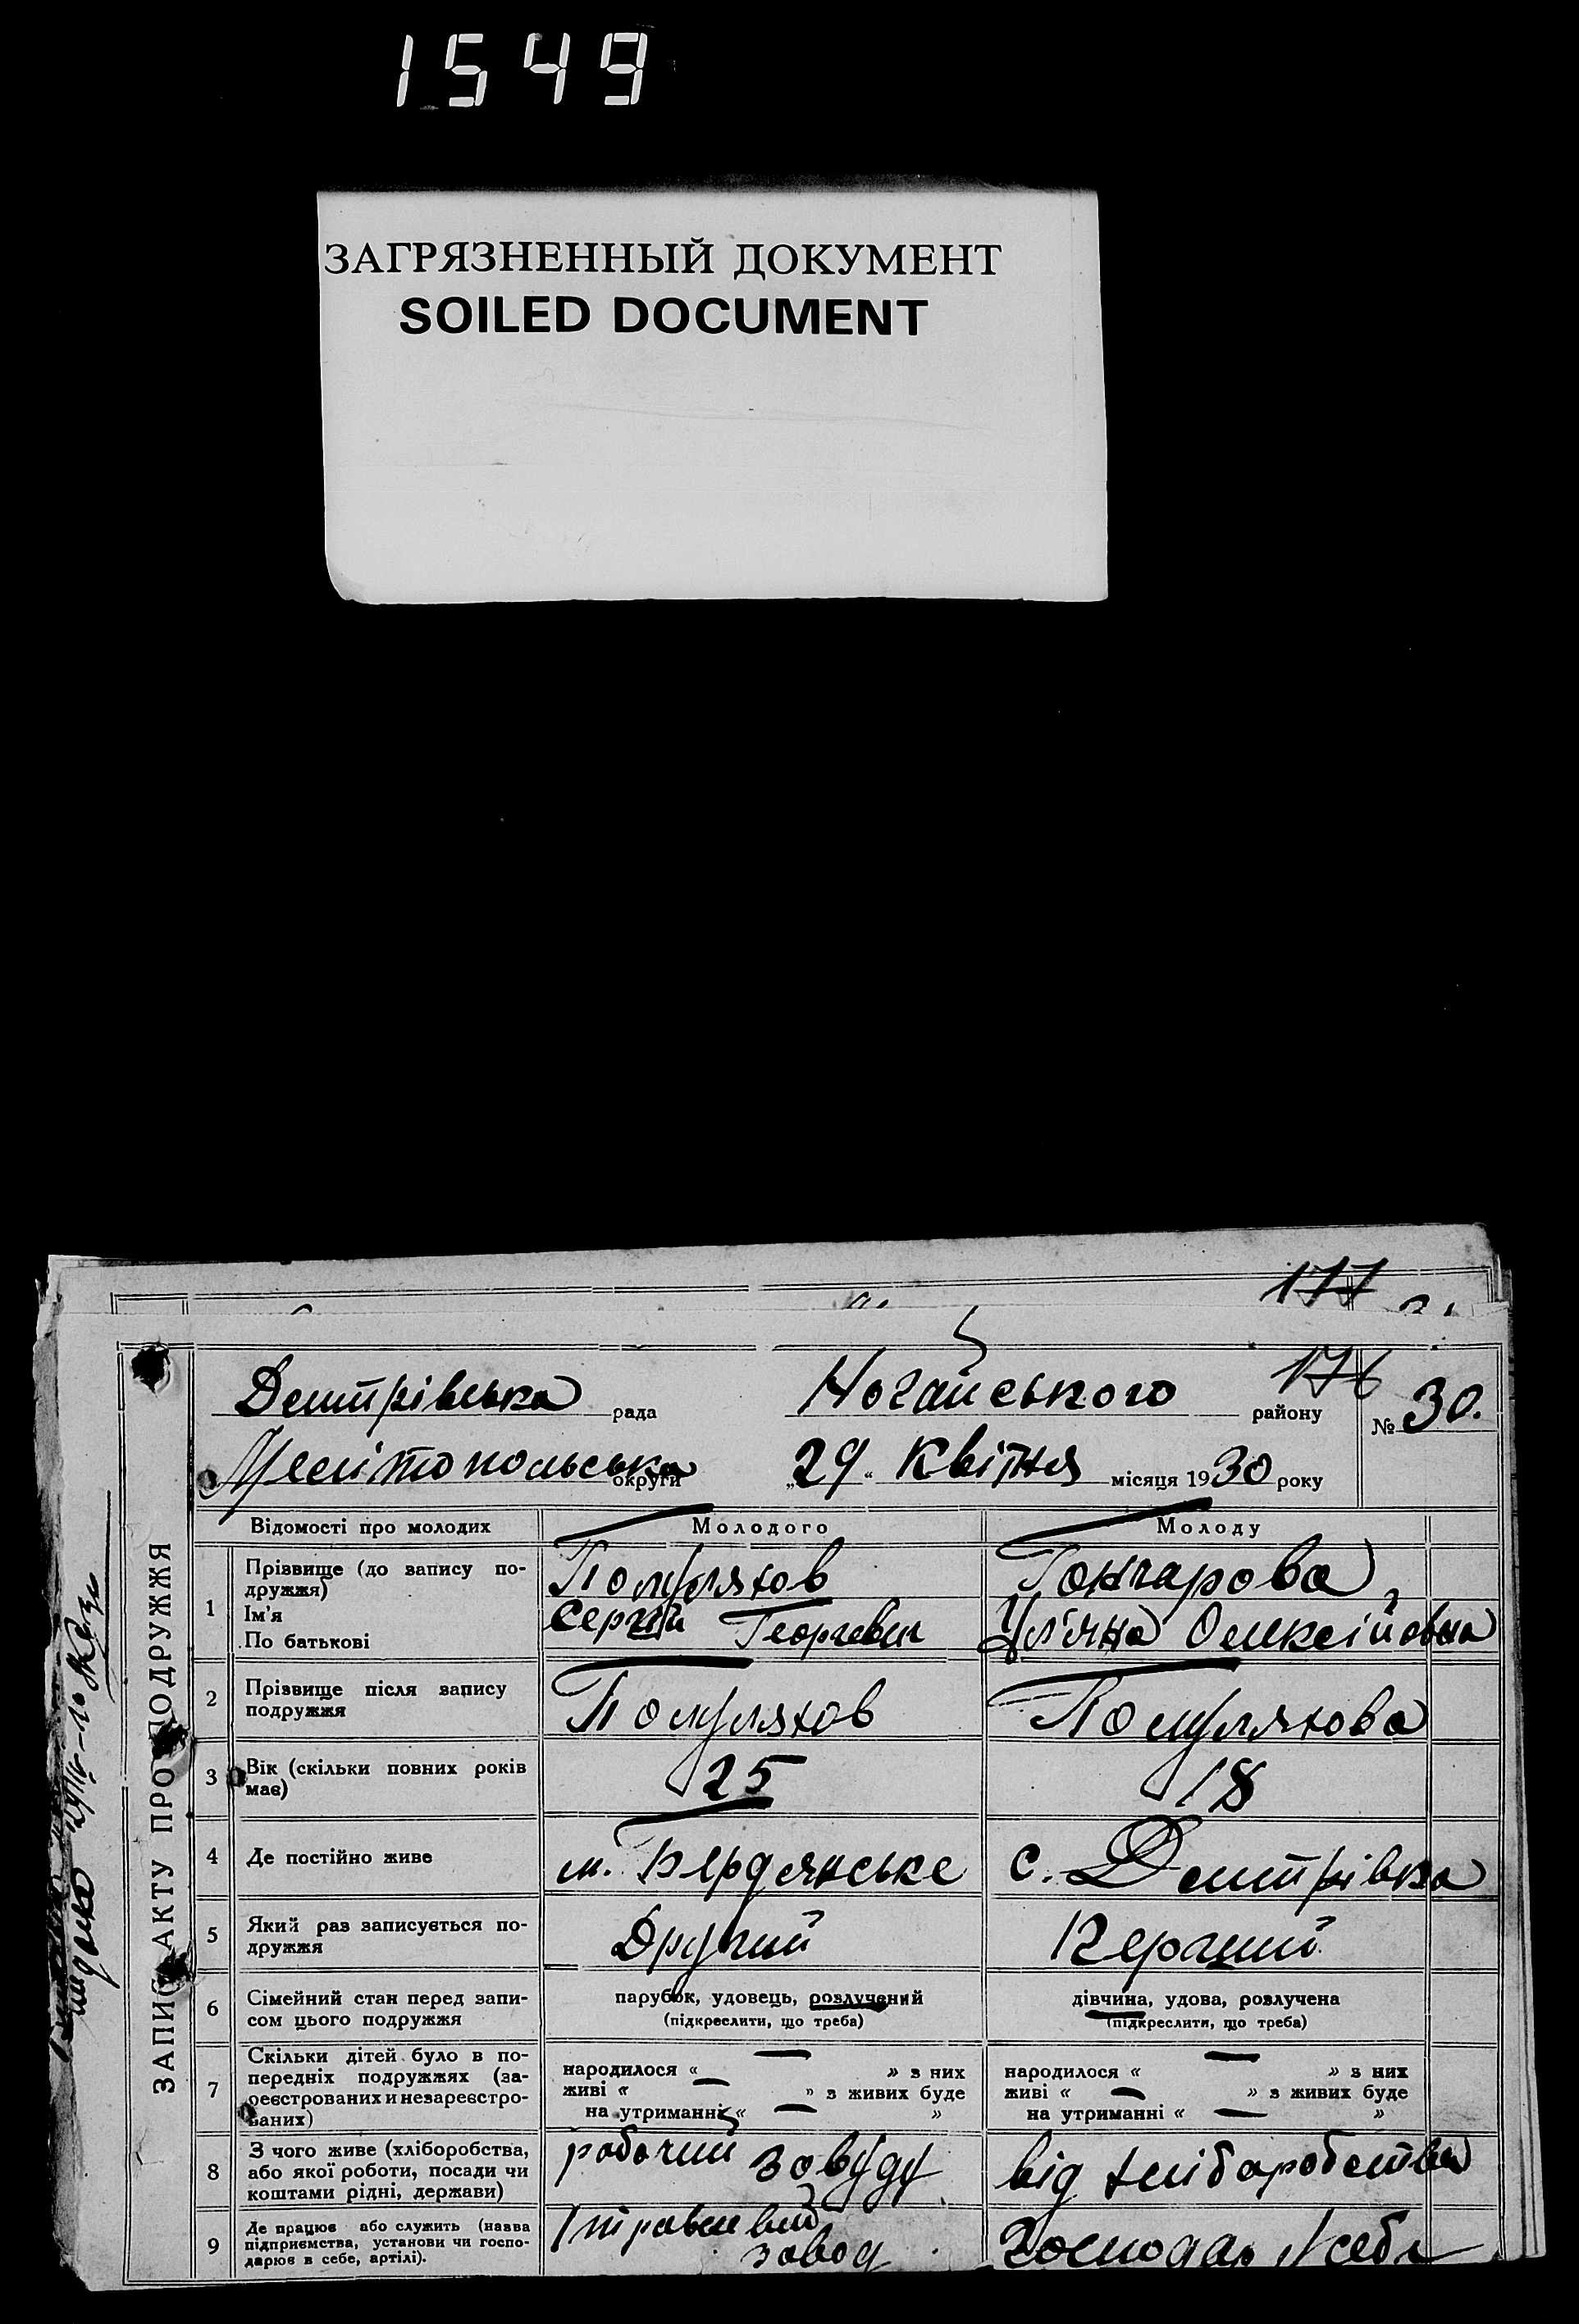 1549
ЗАГРЯЗНЕННЫЙ ДОКУМЕНТ
SOILED DOCUMENT
177
176
Дмитрівська рада Ногайського району № 30.
Мелітопольська округи „29“ квітня місяця 1930 року
ЗАПИС АКТУ ПРО ПОДРУЖЖЯ
Відомості про молодих Молодого Молоду
1 Прізвище (до запису по-
дружжя)
Ім'я
По батькові
Помуляхов
Сергій Георгевич
Гончарова
Ул'яна Олексійовна
2 Прізвище після запису
подружжя
Помуляхов
Помуляхова
3 Вік (скільки повних років
має)
25
18
4 Де постійно живе
м. Бердянське
с. Дмитрівка
5 Який раз записується по-
дружжя
Другий
Перший
6 Сімейний стан перед запи-
сом цього подружжя
парубок, удовець, розлучений
(підкреслити, що треба)
дівчина, удова, розлучена
(підкреслити, що треба)
7 Скільки дітей було в по-
передніх подружжях (за-
реєстрованих и незареєстро-
ваних)
народилося « — » з них
живі « — » з живих буде
на утриманні « — »
народилося « — » з них
живі « — » з живих буде
на утриманні « — »
8 З чого живе (хліборобства,
або якої роботи, посади чи
коштами рідні, держави)
робочий завуду
від хліборобства
9 Де працює або служить (назва
підприємства, установи чи госпо-
дарює в себе, артілі).
завод
Господар себе